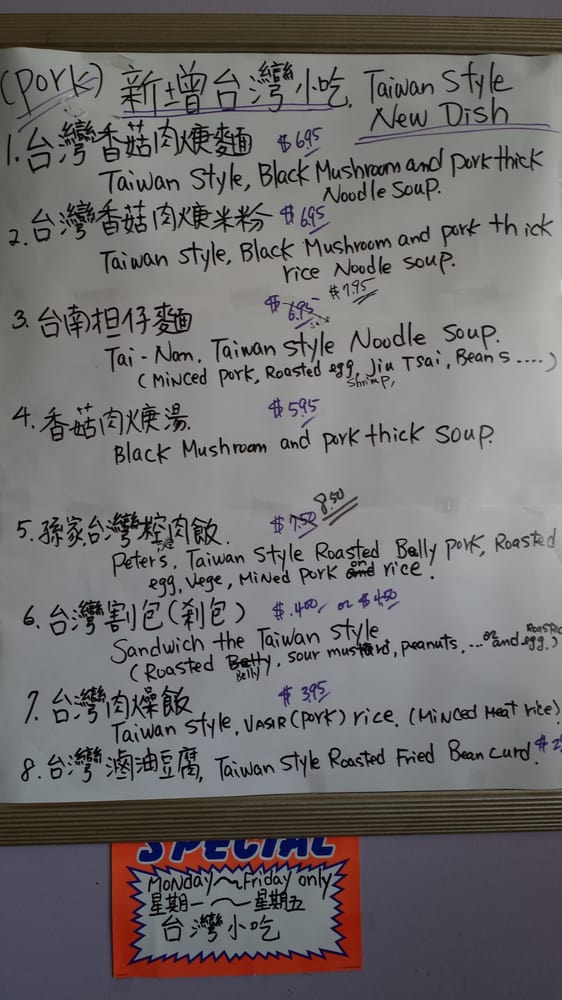 (Pork) 新增台灣小吃. Taiwan Style
New Dish
1. 台灣香菇肉焿麵 $6.95
Taiwan Style, Black Mushroom and pork thick
Noodle Soup.
2. 台灣香菇肉焿米粉 $6.95
Taiwan Style, Black Mushroom and pork thick
rice Noodle soup.
3. 台南担仔麵 $6.95 $7.95
Tai-Nan. Taiwan Style Noodle Soup.
(Minced pork, Roasted egg, Jiu Tsai, Beans ....)
Shrimp,
4. 香菇肉焿湯. $5.95
Black Mushroom and pork thick soup.
5. 孫家台灣控肉飯. $7.50 8.50
Peter's, Taiwan Style Roasted Belly pork, Roasted
egg, Vege, Mined pork on rice.
6. 台灣割包(刹包) $.4.00 or $4.50
Sandwich the Taiwan Style
(Roasted Belly, sour mustard, peanuts, ... or and Roasted egg.)
7. 台灣肉燥飯 $3.95
Taiwan Style, VASIR (Pork) rice. (Minced Meat rice)
8. 台灣滷油豆腐, Taiwan Style Roasted Fried Bean curd. $2
SPECIAL
Monday～Friday only
星期一～星期五
台灣小吃